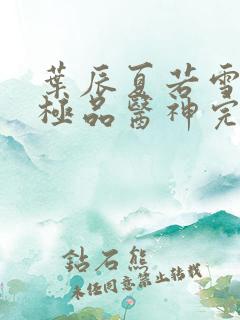 葉辰夏若雪
極品醫神完
鈷石熊
未任同意禁止转载